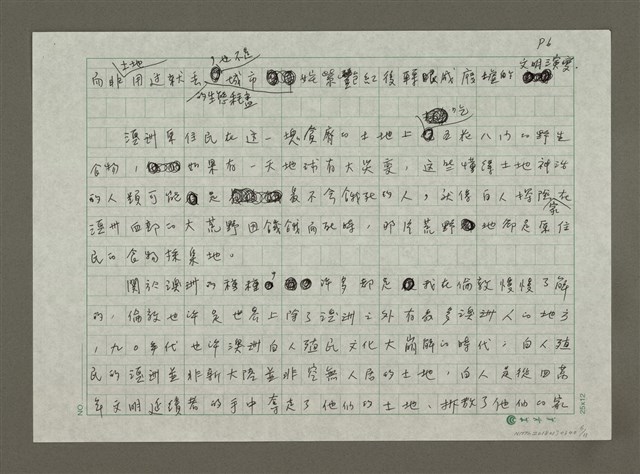 P6
而非土地用過就丟，也不是城市姹紫艷紅後轉眼成廢墟的文明演變.
的生態耗盡
澳洲原住民在這一塊貧瘠的土地上吃五花八門的野生
食物，如果有一天地球有大災變，這些懂得土地神諭
的人類可能是最不會餓死的人，就像白人探險家在
澳洲西部的大荒野因饑餓而死時，那片荒野地卻是原住
民的食物採集地。
關於澳洲的種種，許多都是我在倫敦慢慢了解
的，倫敦也許是世界上除了澳洲之外有最多澳洲人的地方
，九〇年代也許澳洲白人殖民文化大崩解的時代，白人殖
民的澳洲並非新大陸並非空無人居的土地，白人是從四萬
年文明延續者的手中奪走了他們的土地、拆散了他們的家
NO
25x12